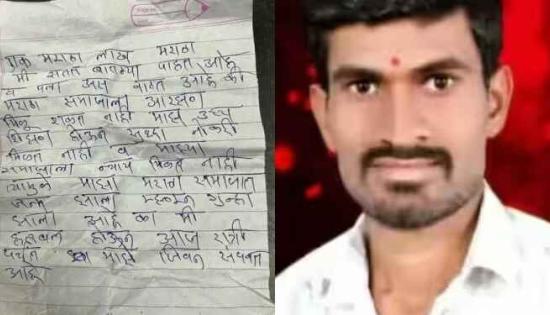 एक मराठा लाख मराठा
मी सतत बातम्या पाहत आहे
व मला असे वाटत आहे की
मराठा समाजाला आरक्षण
मिळू शकत नाही माझे उच्च
शिक्षण होऊन सध्या नोकरी
मिळत नाही व माझ्या
समाजाला न्याय मिळत नाही
त्यामुळे माझा मराठा समाजात
जन्म झाला म्हणून गुन्हा
झाला आहे का मी
हतबल होऊन आज रात्री
माझे जिवन संपवत
आहे